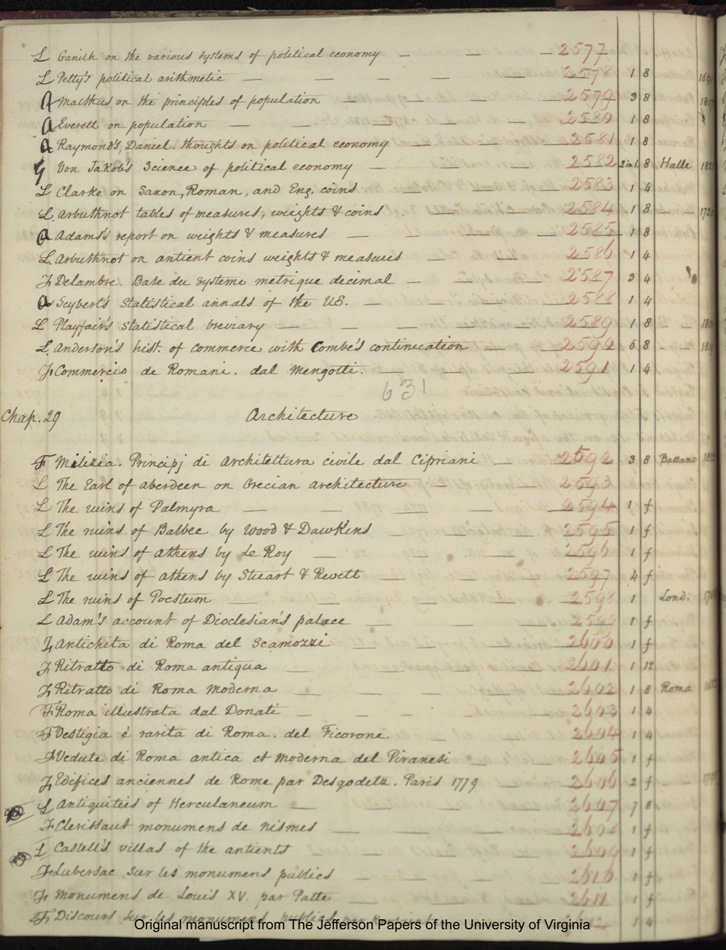 L Ganilh on the various systems of political economy — — — 2577
L Petty's political arithmetic — — — — — — 2578 1 8
A Malthus on the principles of population — — — — 2579 3 8
A Everett on population — — — — — — 2580 1 8
A Raymond's, Daniel. thoughts on political economy — — — 2581 1 8
G Von Jakob's Science of political economy — — — — 2582 2 in 1 8 Halle
L Clarke on Saxon, Roman, and Eng. coins — — — 2583 1 4
L Arbuthnot tables of measures, weights & coins — — — 2584 1 8
A Adams's report on weights & measures — — — — 2585 1 8
L Arbuthnot on antient coins weights & measures — — — 2586 1 4
F Delambre. Base du systeme metrique decimal — — — 2587 3 4
A Seybert's Statistical annals of the US. — — — — 2588 1 4
L Playfair's statistical breviary — — — — — 2589 1 8
L Anderson's hist. of commerce with Combe's continuation — — 2590 6 8
F Commercio de Romani. dal Mengotti. — — — 2591 1 4
631
Chap. 29 Architecture
F Milizia. Principj di Architettura civile dal Cipriani — 2592 3 8 Bassano
L The Earl of Aberdeen on Grecian Architecture — — 2593
L The ruins of Palmyra — — — — — — 2594 1 f
L The ruins of Balbec by Wood & Dawkins — — — 2595 1 f
L The ruins of Athens by Le Roy — — — — 2596 1 f
L The ruins of Athens by Stuart & Revett — — — 2597 4 f
L The ruins of Poestum — — — — — 2598 1 Lond.
L Adam's account of Dioclesian's palace — — — 2599 1 f
F Antichita di Roma del Scamozzi — — — 2600 1 f
F Ritratto di Roma antiqua — — — — 2601 1 12
F Ritratto di Roma Moderna — — — — 2602 1 8 Roma
F Roma illustrata dal Donati — — — — 2603 1 4
F Vestigia è rarita di Roma. del Ficorone — — 2604 1 4
F Vedute di Roma antica et Moderna del Piranesi — 2605 1 f
F Edifices anciennes de Rome par Desgodetz. Paris 1779 — 2606 2 f
L Antiquities of Herculaneum — — — — 2607 7 8
F Clerissaut monumens de Nismes — — — 2608 1 f
L Castell's villas of the antients — — — 2609 1 f
F Lubersac sur les monumens publics — — 2610 1 f
F Monumens de Louis XV. par Patte — — 2611 1 f
F Discours sur les monumens publics 2612 1 4
Original manuscript from The Jefferson Papers of the University of Virginia